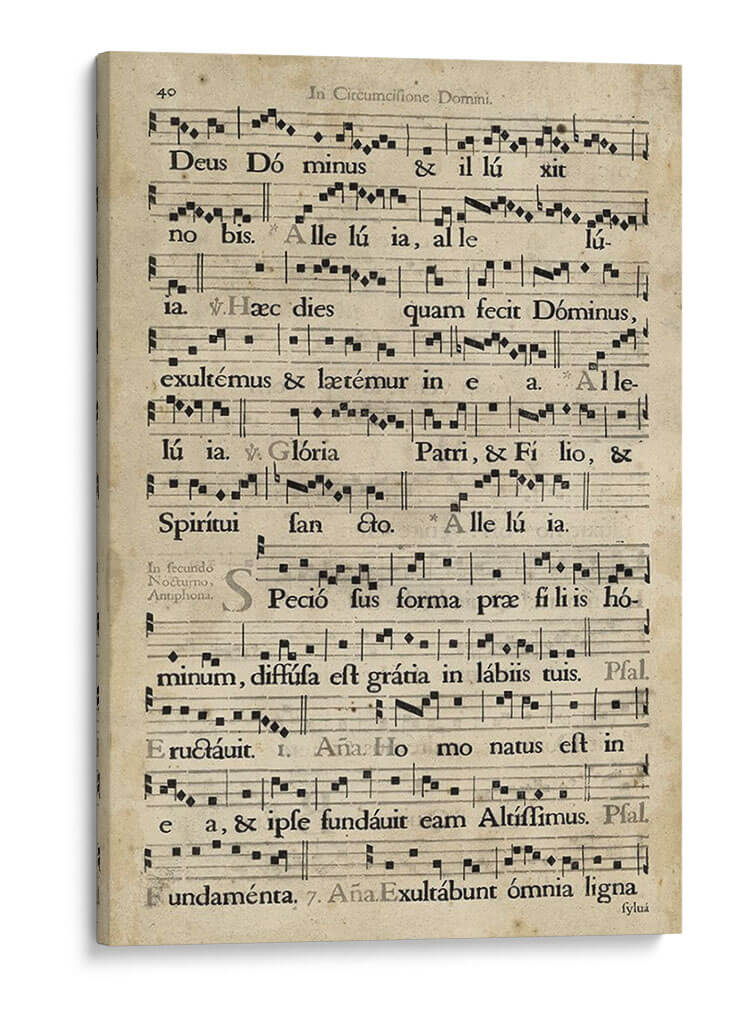 40
In Circumcisione Domini.
Deus Dó minus & il lú xit
no bis. * Alle lú ia, al le lú-
ia. ℣. Hæc dies quam fecit Dóminus,
exultémus & lætémur in e a. * Al le-
lú ia. ℣. Glória Patri, & Fí lio, &
Spirítui ſan cto. * Alle lú ia.
In ſecundo
Nocturno,
Antiphona.
SPeció ſus forma præ fi li is hó-
minum, diffúſa eſt grátia in lábiis tuis. Pſal.
Eructáuit. 1. Aña. Ho mo natus eſt in
e a, & ipſe fundáuit eam Altíſſimus. Pſal.
Fundaménta. 7. Aña. Exultábunt ómnia ligna
ſyluá